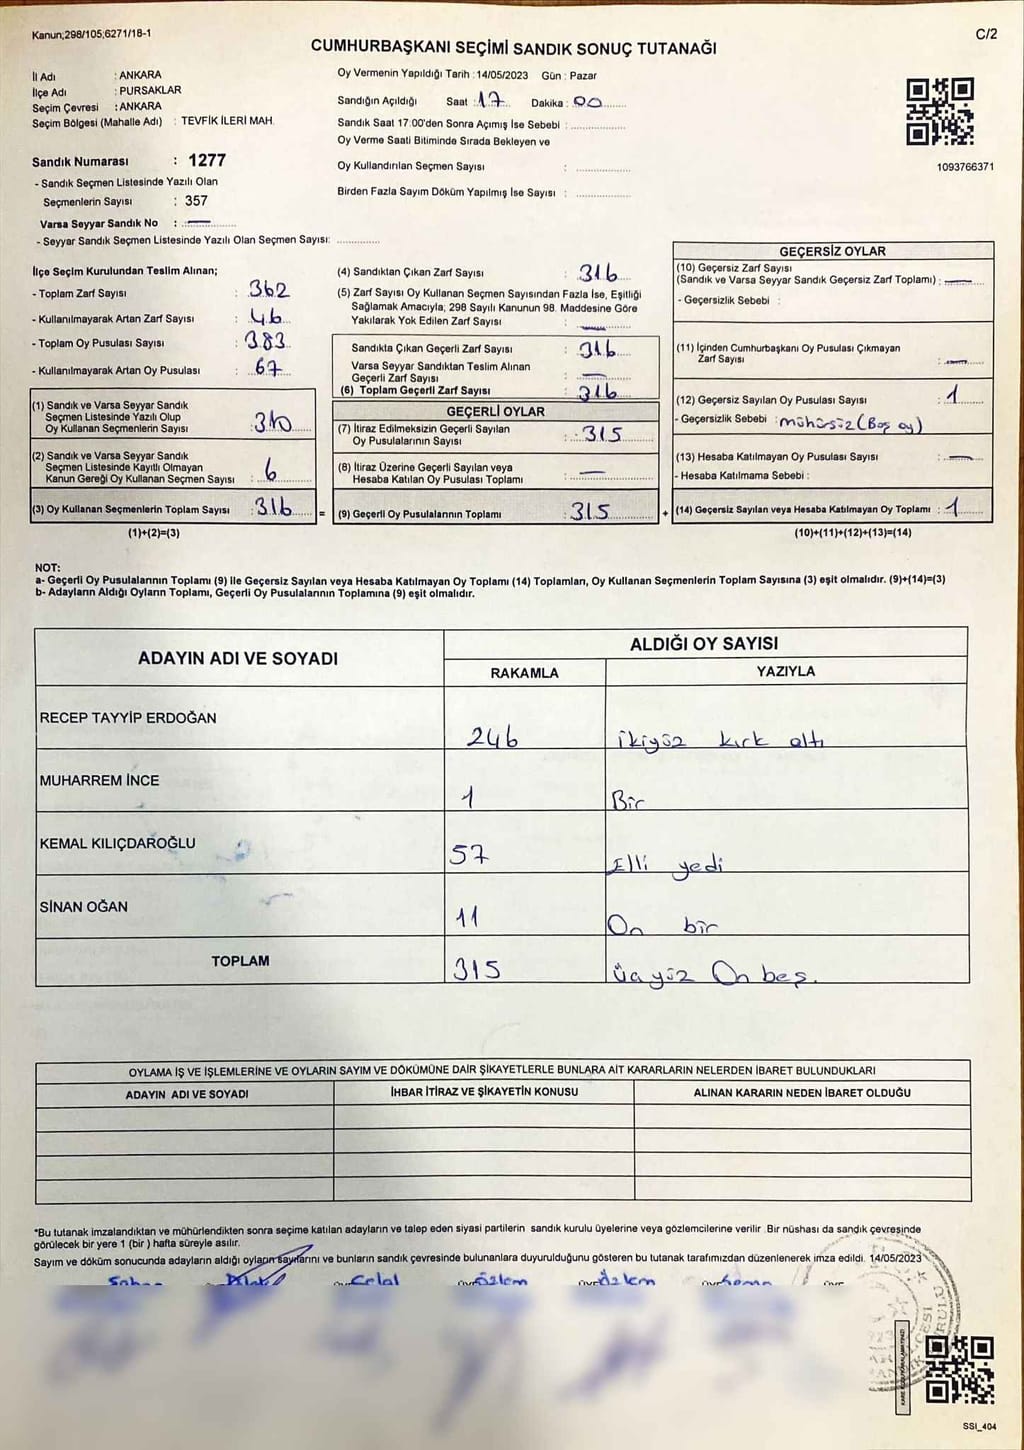 Kanun;298/105;6271/18-1
C/2
CUMHURBAŞKANI SEÇİMİ SANDIK SONUÇ TUTANAĞI
İl Adı : ANKARA
İlçe Adı : PURSAKLAR
Seçim Çevresi : ANKARA
Seçim Bölgesi (Mahalle Adı) : TEVFİK İLERİ MAH.
Sandık Numarası : 1277
- Sandık Seçmen Listesinde Yazılı Olan
Seçmenlerin Sayısı : 357
Varsa Seyyar Sandık No : —
- Seyyar Sandık Seçmen Listesinde Yazılı Olan Seçmen Sayısı: ..............
Oy Vermenin Yapıldığı Tarih : 14/05/2023 Gün : Pazar
Sandığın Açıldığı Saat : 17 Dakika : 00
Sandık Saat 17:00'den Sonra Açımış İse Sebebi : ..............
Oy Verme Saati Bitiminde Sırada Bekleyen ve
Oy Kullandırılan Seçmen Sayısı : ..............
Birden Fazla Sayım Döküm Yapılmış İse Sayısı : ..............
1093766371
İlçe Seçim Kurulundan Teslim Alınan;
- Toplam Zarf Sayısı : 362
- Kullanılmayarak Artan Zarf Sayısı : 46
- Toplam Oy Pusulası Sayısı : 383
- Kullanılmayarak Artan Oy Pusulası : 67
(1) Sandık ve Varsa Seyyar Sandık
Seçmen Listesinde Yazılı Olup
Oy Kullanan Seçmenlerin Sayısı : 310
(2) Sandık ve Varsa Seyyar Sandık
Seçmen Listesinde Kayıtlı Olmayan
Kanun Gereği Oy Kullanan Seçmen Sayısı : 6
(3) Oy Kullanan Seçmenlerin Toplam Sayısı : 316 =
(1)+(2)=(3)
(4) Sandıktan Çıkan Zarf Sayısı : 316
(5) Zarf Sayısı Oy Kullanan Seçmen Sayısından Fazla İse, Eşitliği
Sağlamak Amacıyla; 298 Sayılı Kanunun 98. Maddesine Göre
Yakılarak Yok Edilen Zarf Sayısı : —
Sandıkta Çıkan Geçerli Zarf Sayısı : 316
Varsa Seyyar Sandıktan Teslim Alınan
Geçerli Zarf Sayısı : —
(6) Toplam Geçerli Zarf Sayısı : 316
GEÇERLİ OYLAR
(7) İtiraz Edilmeksizin Geçerli Sayılan
Oy Pusulalarının Sayısı : 315
(8) İtiraz Üzerine Geçerli Sayılan veya
Hesaba Katılan Oy Pusulası Toplamı : —
(9) Geçerli Oy Pusulalarının Toplamı : 315 +
GEÇERSİZ OYLAR
(10) Geçersiz Zarf Sayısı
(Sandık ve Varsa Seyyar Sandık Geçersiz Zarf Toplamı) : —
- Geçersizlik Sebebi :
(11) İçinden Cumhurbaşkanı Oy Pusulası Çıkmayan
Zarf Sayısı : —
(12) Geçersiz Sayılan Oy Pusulası Sayısı : 1
- Geçersizlik Sebebi : mühürsüz (Boş oy)
(13) Hesaba Katılmayan Oy Pusulası Sayısı : —
- Hesaba Katılmama Sebebi :
(14) Geçersiz Sayılan veya Hesaba Katılmayan Oy Toplamı : 1
(10)+(11)+(12)+(13)=(14)
NOT:
a- Geçerli Oy Pusulalarının Toplamı (9) ile Geçersiz Sayılan veya Hesaba Katılmayan Oy Toplamı (14) Toplamları, Oy Kullanan Seçmenlerin Toplam Sayısına (3) eşit olmalıdır. (9)+(14)=(3)
b- Adayların Aldığı Oyların Toplamı, Geçerli Oy Pusulalarının Toplamına (9) eşit olmalıdır.
ADAYIN ADI VE SOYADI
ALDIĞI OY SAYISI
RAKAMLA YAZIYLA
RECEP TAYYİP ERDOĞAN 246 ikiyüz kırk altı
MUHARREM İNCE 1 Bir
KEMAL KILIÇDAROĞLU 57 Elli yedi
SİNAN OĞAN 11 On bir
TOPLAM 315 üçyüz On beş.
OYLAMA İŞ VE İŞLEMLERİNE VE OYLARIN SAYIM VE DÖKÜMÜNE DAİR ŞİKAYETLERLE BUNLARA AİT KARARLARIN NELERDEN İBARET BULUNDUKLARI
ADAYIN ADI VE SOYADI İHBAR İTİRAZ VE ŞİKAYETİN KONUSU ALINAN KARARIN NEDEN İBARET OLDUĞU
*Bu tutanak imzalandıktan ve mühürlendikten sonra seçime katılan adayların ve talep eden siyasi partilerin sandık kurulu üyelerine veya gözlemcilerine verilir. Bir nüshası da sandık çevresinde
görülecek bir yere 1 (bir) hafta süreyle asılır.
Sayım ve döküm sonucunda adayların aldığı oyların sayılarını ve bunların sandık çevresinde bulunanlara duyurulduğunu gösteren bu tutanak tarafımızdan düzenlenerek imza edildi. 14/05/2023
Celal Özlem Özlem
SSI_404